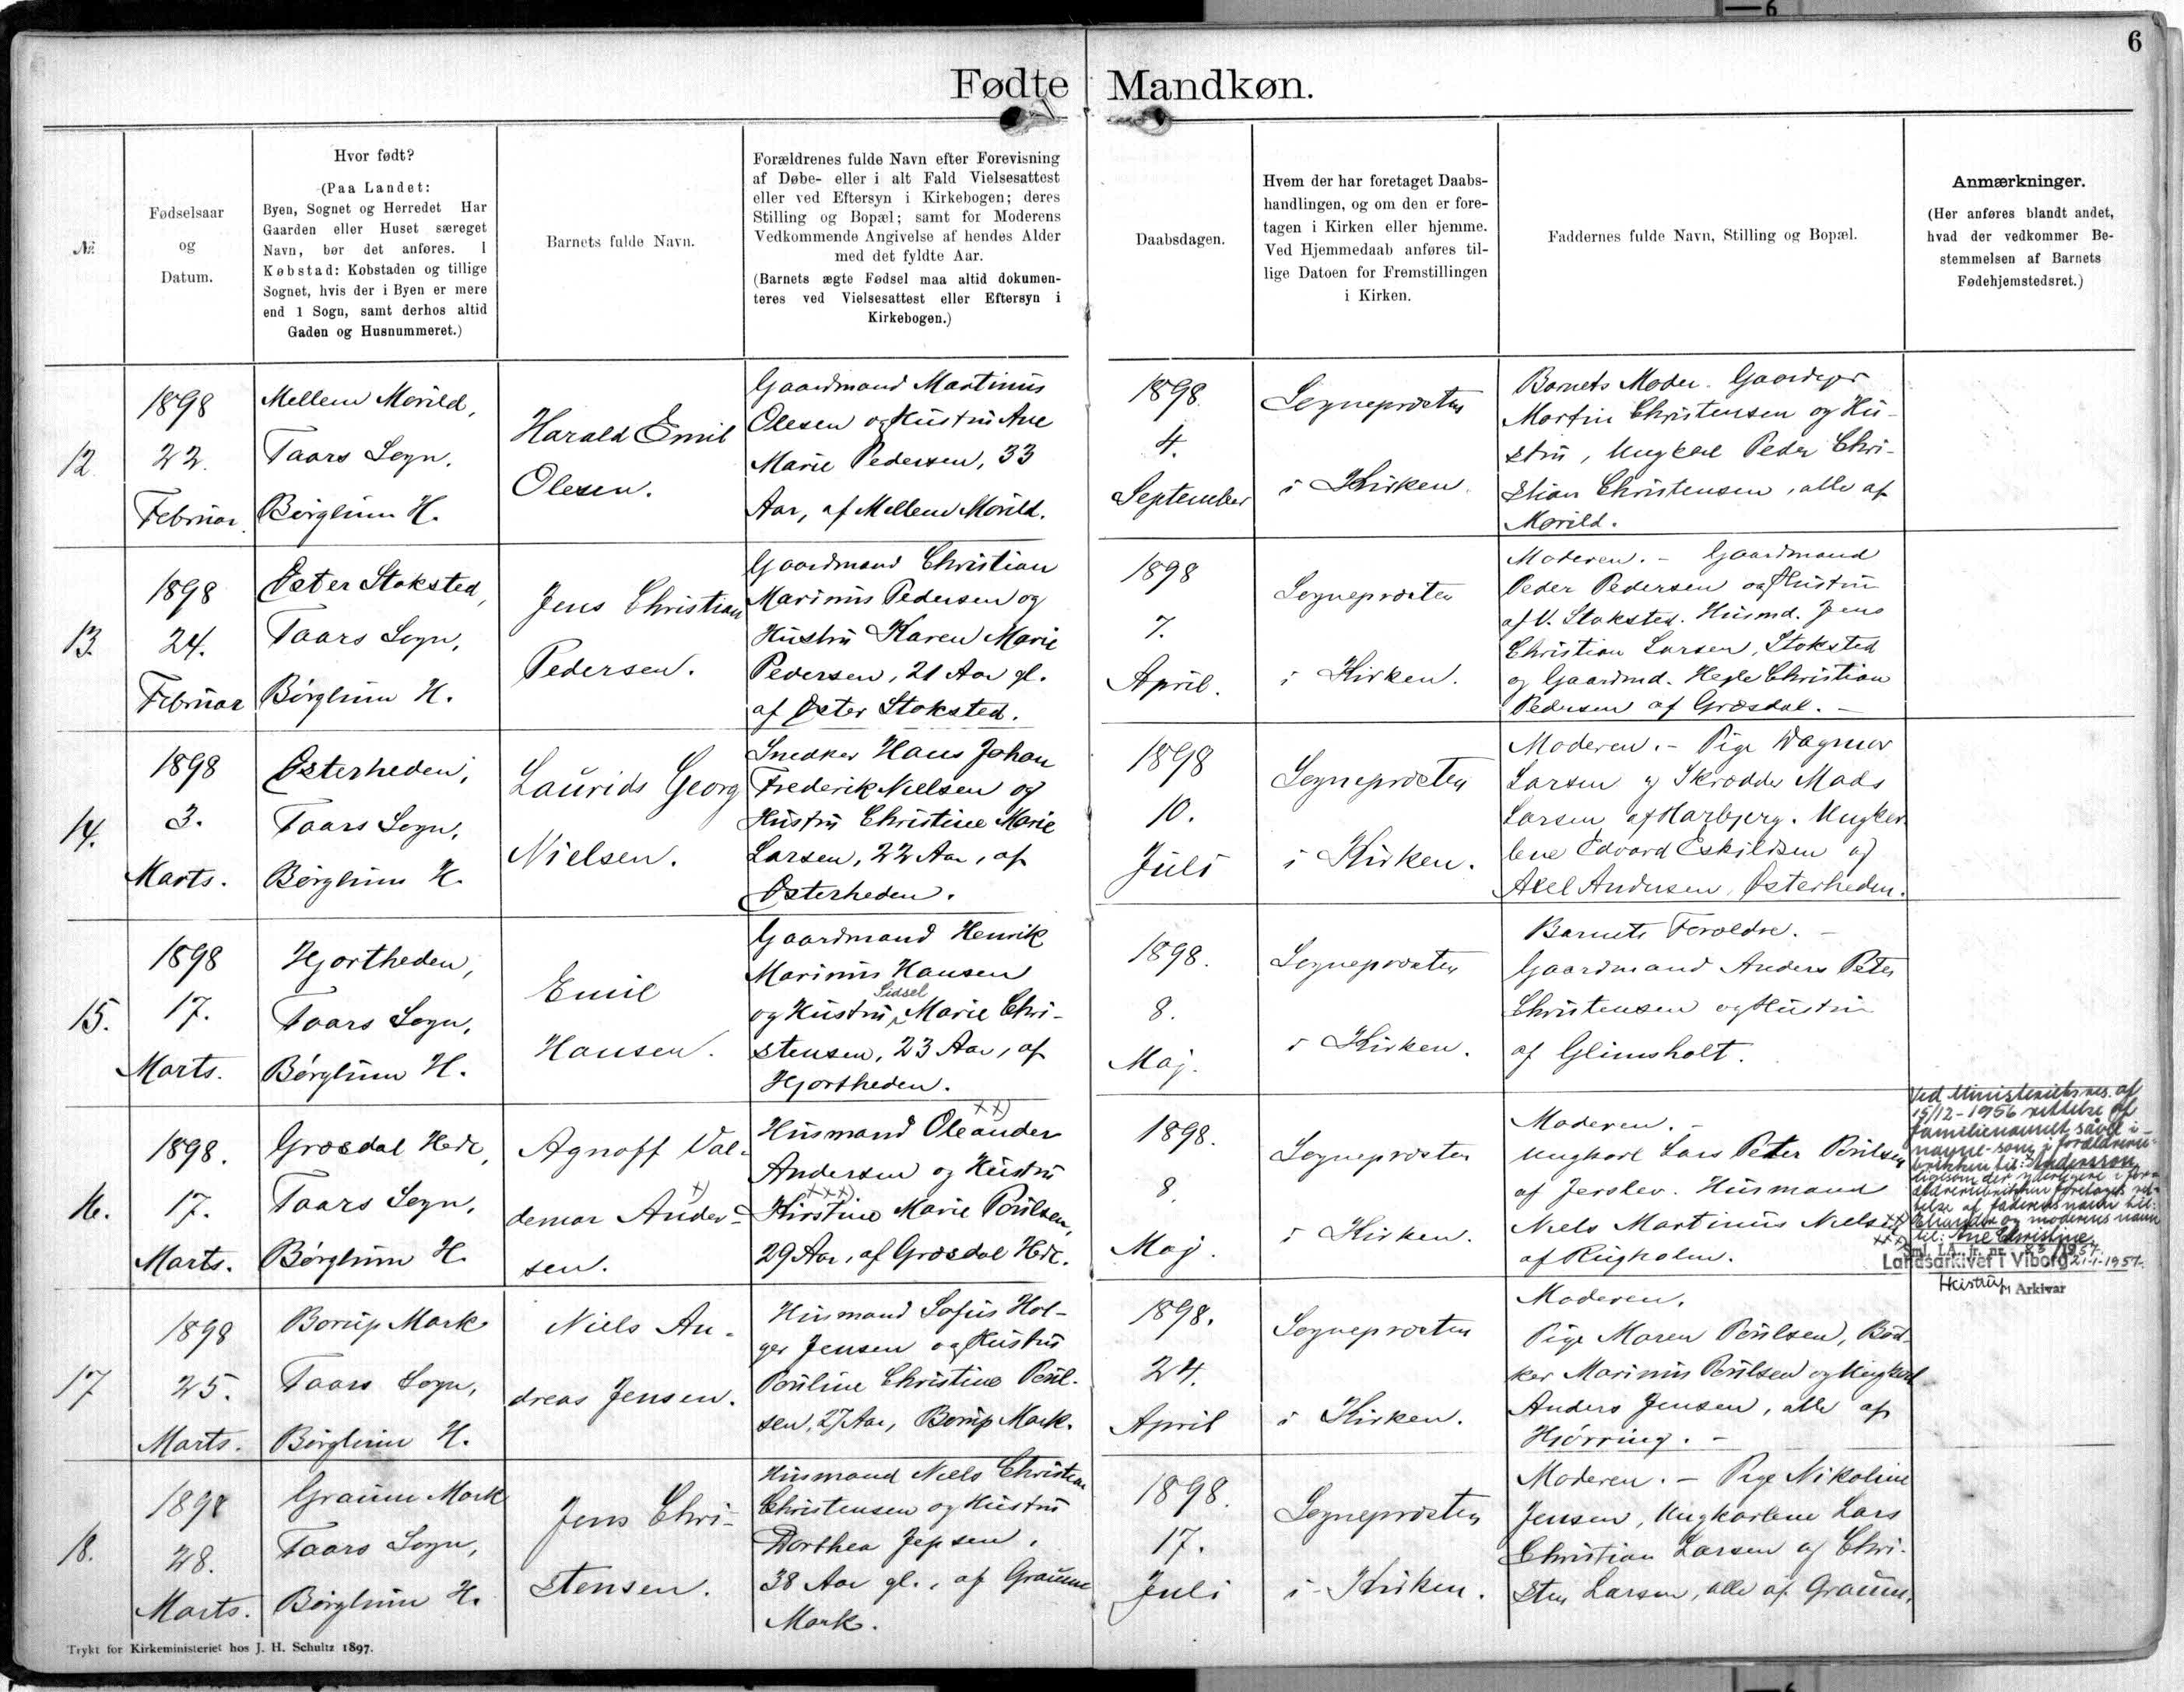 6
Fødte Mandkøn.
№
Fødselsaar
og
Datum.
Hvor født?
(Paa Landet:
Byen, Sognet og Herredet Har
Gaarden eller Huset særeget
Navn, bør det anføres. I
Købstad: Købstaden og tillige
Sognet, hvis der i Byen er mere
end 1 Sogn, samt derhos altid
Gaden og Husnummeret.)
Barnets fulde Navn.
Forældrenes fulde Navn efter Forevisning
af Døbe- eller i alt Fald Vielsesattest
eller ved Eftersyn i Kirkebogen; deres
Stilling og Bopæl; samt for Moderens
Vedkommende Angivelse af hendes Alder
med det fyldte Aar.
(Barnets ægte Fødsel maa altid dokumen-
teres ved Vielsesattest eller Eftersyn i
Kirkebogen.)
Daabsdagen.
Hvem der har foretaget Daabs-
handlingen, og om den er fore-
tagen i Kirken eller hjemme.
Ved Hjemmedaab anføres til-
lige Datoen for Fremstillingen
i Kirken.
Faddernes fulde Navn, Stilling og Bopæl.
Anmærkninger.
(Her anføres blandt andet,
hvad der vedkommer Be-
stemmelsen af Barnets
Fødehjemstedsret.)
12
1898
22.
Februar.
Mellem Mørild,
Taars Sogn.
Børglum H.
Harald Emil
Olesen.
Gaardmand Martinus
Olesen og Hustru Ane
Marie Pedersen, 33
Aar, af Mellem Mørild.
1898.
4.
September
Sognepræsten
i Kirken.
Barnets Moder. Gaardejer
Martin Christensen og Hu-
stru, Ungkarl Peder Chri-
stian Christensen, alle af
Mørild.
13.
1898
24.
Februar
Øster Stoksted,
Taars Sogn,
Børglum H.
Jens Christian
Pedersen.
Gaardmand Christian
Marinus Pedersen og
Hustru Karen Marie
Pedersen, 21 Aar gl.
af Øster Stoksted.
1898
7.
April.
Sognepræsten
i Kirken.
Moderen. - Gaardmand
Peder Pedersen og Hustru
af V. Stoksted. Husmd. Jens
Christian Larsen, Stoksted
og Gaardmd. Christian
Pedersen af Græsdal. -
14.
1898
3.
Marts.
Østerheden,
Taars Sogn,
Børglum H.
Laurids Georg
Nielsen.
Snedker Hans Johan
Frederik Nielsen og
Hustru Christine Marie
Larsen, 22 Aar, af
Østerheden.
1898
10.
Juli
Sognepræsten
i Kirken.
Moderen. - Pige Dagmar
Larsen og Skrædder Mads
Larsen af Harbjerg. Ungkar-
lene Edvard Eskildsen og
Axel Andersen, Østerheden.
15.
1898
17.
Marts.
Hjortheden,
Taars Sogn,
Børglum H.
Emil
Hansen.
Gaardmand Henrik
Marinus Hansen
Sidsel
og Hustru Marie Chri-
stensen, 23 Aar, af
Hjortheden.
1898.
8.
Maj.
Sognepræsten
i Kirken.
Barnets Forældre. -
Gaardmand Anders Peter
Christensen og Hustru
af Glimsholt.
16.
1898.
17.
Marts.
Græsdal Hede,
Taars Sogn,
Børglum H.
Agnoff Val-
demar Ander-
x)
sen.
xx)
Husmand Oleander
Andersen og Hustru
xxx)
Kirstine Marie Poulsen,
29 Aar, af Græsdal Hede.
1898.
8.
Maj.
Sognepræsten
i Kirken.
Moderen. -
Ungkarl Lars Peter Poulsen
af Jerslev. Husmand
Niels Martinus Nielsen
af Rugholm.
Ved Ministerielskr. af
15/12-1956 rettelse af
familienavnet såvel i
navne- som i forældreru-
brikken til: Andersson
ligesom der yderligere i for-
ældrerubrikken foretages ret-
telse af faderens navn til:
og moderens navn
xxx) til: Ane Christine.
Landsarkivet i Viborg 21-1-1957.
Arkivar
17
1898
25.
Marts.
Borup Mark
Taars Sogn,
Børglum H.
Niels An-
dreas Jensen.
Husmand Sofus Hol-
ger Jensen og Hustru
Pouline Christine Poul-
sen, 27 Aar, Borup Mark.
1898.
24.
April
Sognepræsten
i Kirken.
Moderen.
Pige Maren Poulsen, Bød-
ker Marinus Poulsen og Ungkarl
Anders Jensen, alle af
Hjørring. -
18.
1898
28.
Marts.
Graum Mark
Taars Sogn,
Børglum H.
Jens Chri-
stensen.
Husmand Niels Christian
Christensen og Hustru
Dorthea Jepsen,
38 Aar gl., af Graum
Mark.
1898.
17.
Juli
Sognepræsten
i Kirken.
Moderen. - Pige Nikoline
Jensen, Ungkarlene Lars
Christian Larsen og Chri-
sten Larsen, alle af Graum.
Trykt for Kirkeministeriet hos J. H. Schultz 1897.